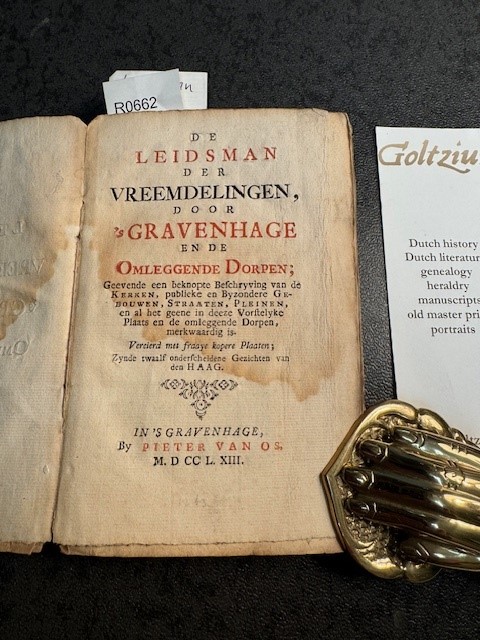 R0662
DE
LEIDSMAN
DER
VREEMDELINGEN,
DOOR
'sGRAVENHAGE
EN DE
OMLEGGENDE DORPEN;
Geevende een beknopte Beschryving van de
KERKEN, publieke en Byzondere GE-
BOUWEN, STRAATEN, PLEINEN,
en al het geene in deeze Vorstelyke
Plaats en de omleggende Dorpen,
merkwaardig is.
Vercierd met fraaye kopere Plaaten;
Zynde twaalf onderscheidene Gezichten van
den HAAG.
IN 'S GRAVENHAGE,
By PIETER VAN OS.
M. D CC L. XIII.
Goltziu
Dutch history
Dutch literature
genealogy
heraldry
manuscripts
old master pri
portraits